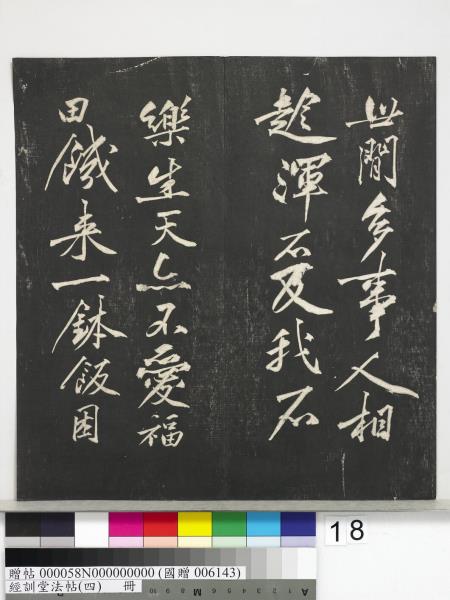 世閒多事人相
趁渾不及我不
樂生天亦不愛福
田饑来一鉢飯困
18
贈帖 000058N000000000 (國贈 006143)
經訓堂法帖(四) 冊